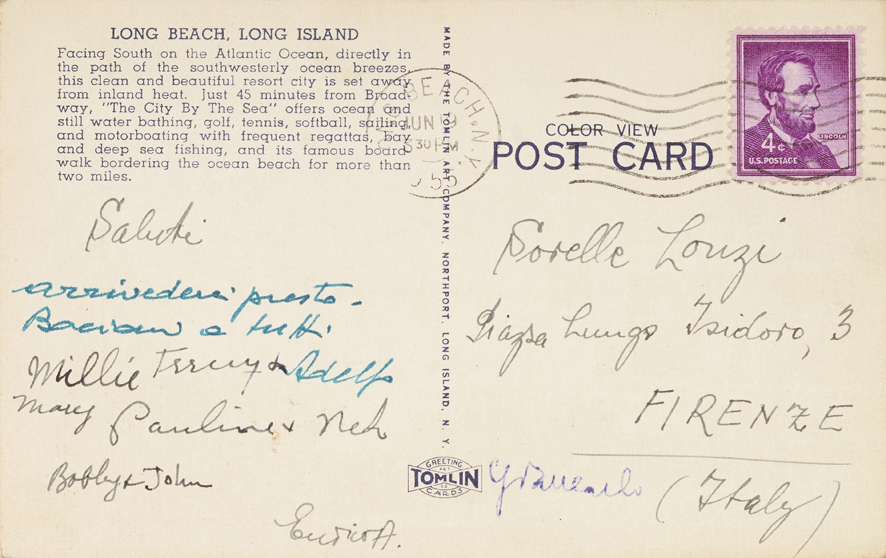 LONG BEACH, LONG ISLAND
Facing South on the Atlantic Ocean, directly in
the path of the southwesterly ocean breezes,
this clean and beautiful resort city is set away
from inland heat. Just 45 minutes from Broad-
way, "The City By The Sea" offers ocean and
still water bathing, golf, tennis, softball, sailing,
and motorboating with frequent regattas, bay
and deep sea fishing, and its famous board-
walk bordering the ocean beach for more than
two miles.
Saluti
arrivederci presto.
Baciani a tutti.
Millie Terry & Adelfo
Mary Pauline &
Bobby & John
Enrico A.
MADE BY THE TOMLIN ART COMPANY, NORTHPORT, LONG ISLAND, N. Y.
GREETING
ART
TOMLIN
CO
CARDS
BEACH, N.Y.
JUN 9
30 PM
COLOR VIEW
POST CARD
LINCOLN
4¢
U.S. POSTAGE
Sorelle Lonzi
Piazza Lungo Isidoro, 3
FIRENZE
(Italy)
Giancarlo